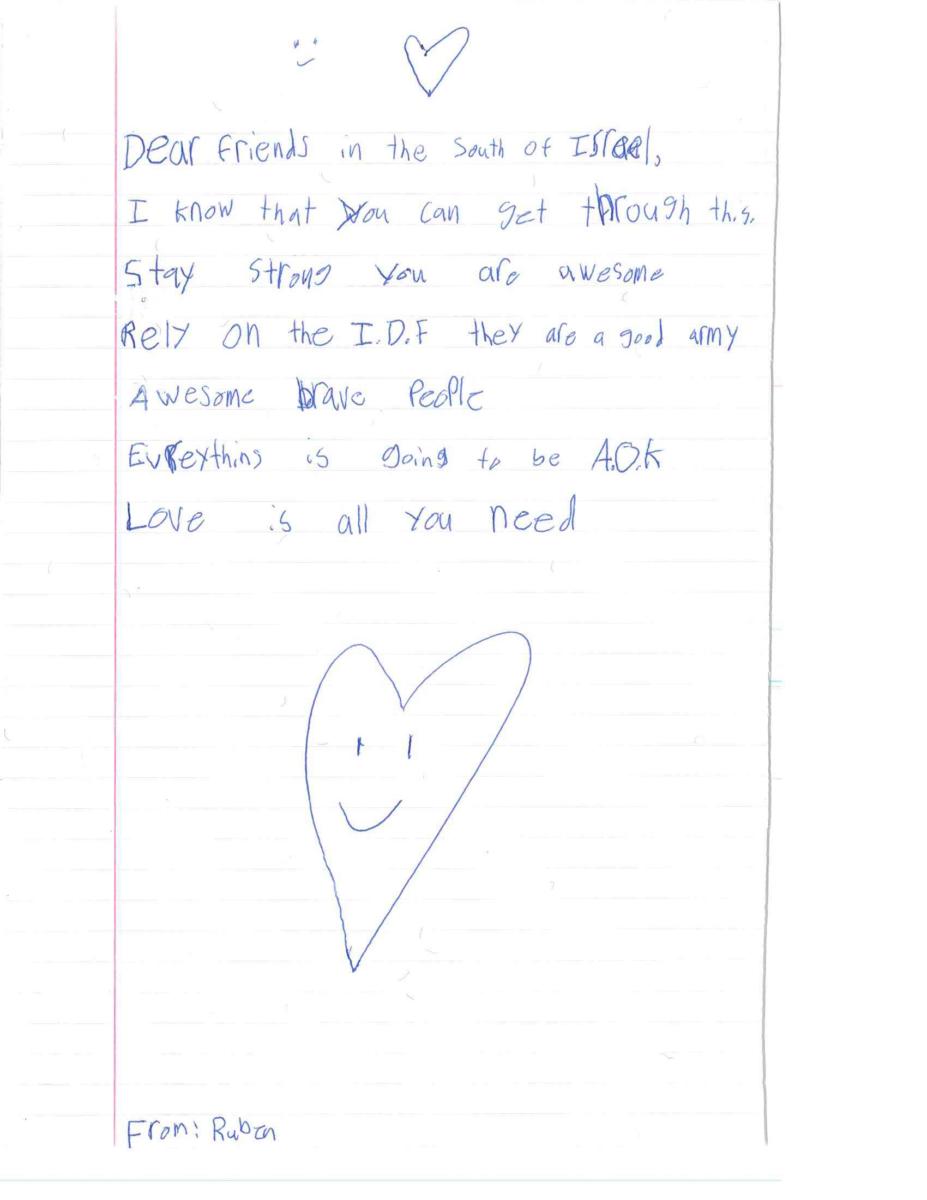 Dear friends in the South of Israel,
I know that you can get through this.
Stay strong you are awesome
Rely on the I.D.F they are a good army
Awesome brave people
Evreything is going to be A.O.K
Love is all you need
From: Ruben